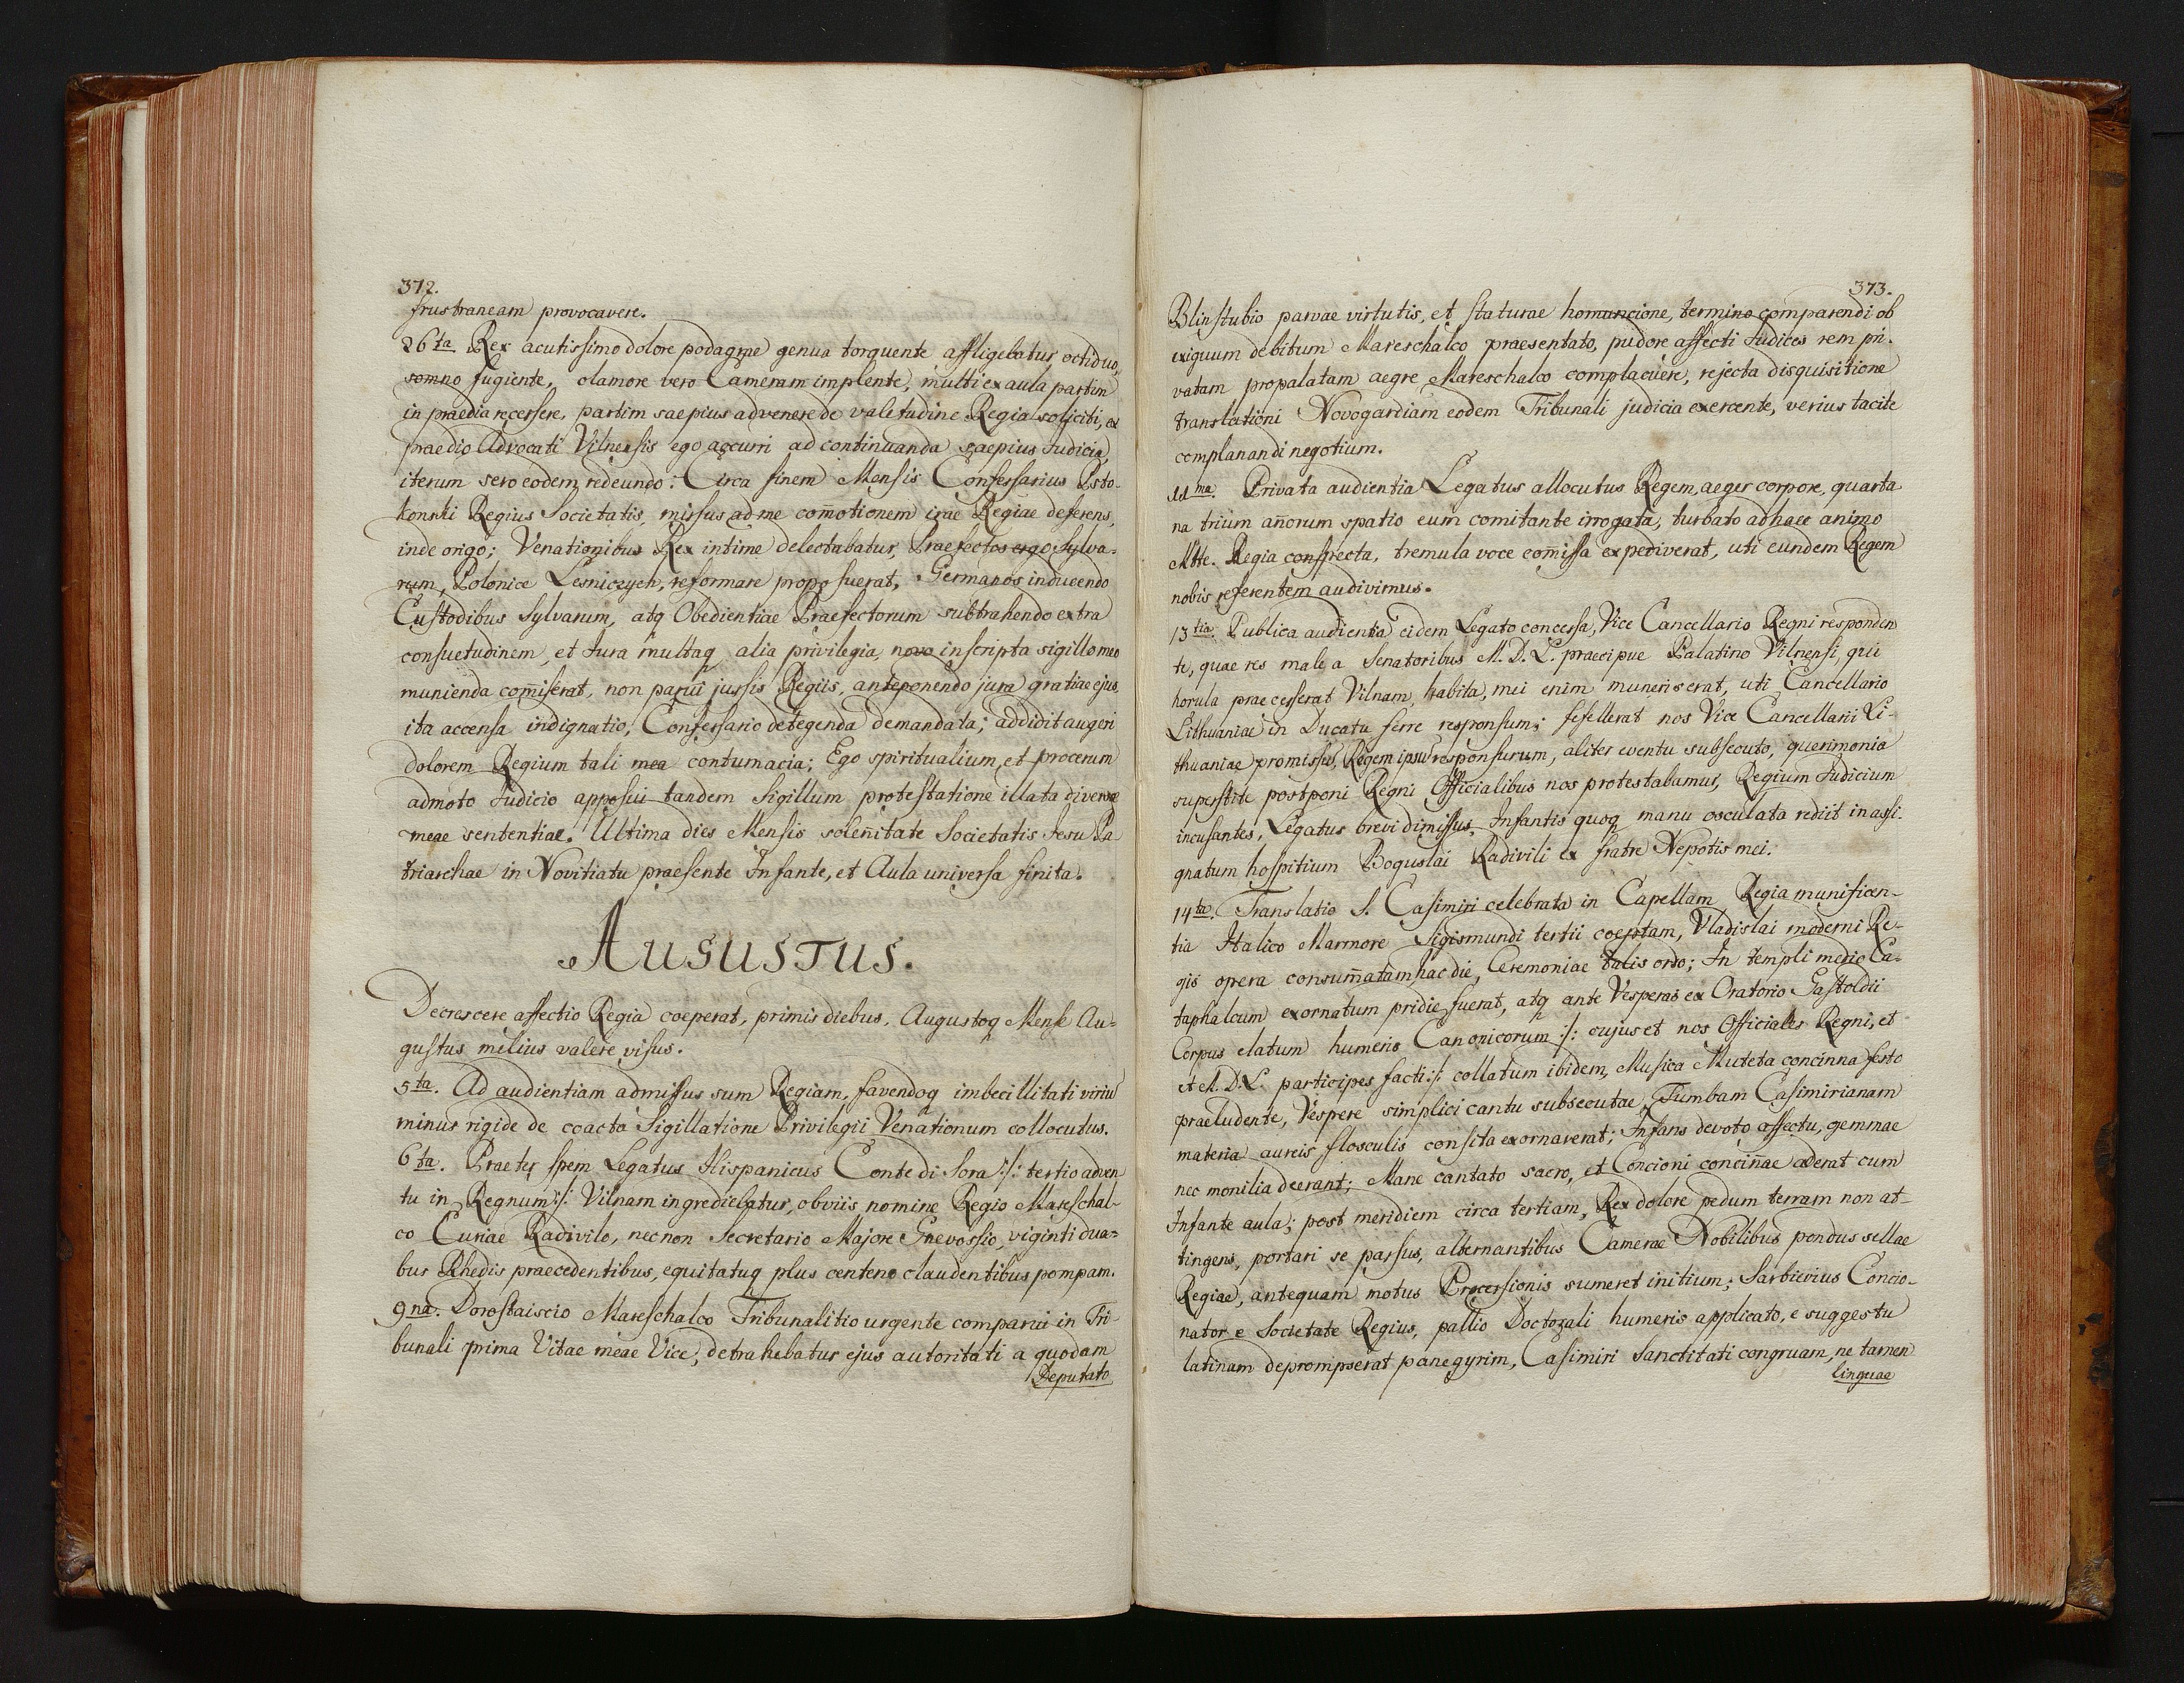 372.
frustraneam provocavere.
26ta Rex acutissimo dolore podagrae genua torquente affligebatur octiduo,
somno fugiente, clamore vero Cameram implente, multi ex aula partim
in praedia recessere, partim saepius advenere de valetudine Regia soliciti, ex
praedio Advocati Vilnensis ego accurri ad continuanda saepius Judicia,
iterum sero eodem redeundo: Circa finem Mensis Confessarius Psto-
konski Regius Societatis, missus ad me com̄otionem irae Regiae deferens,
inde origo; Venationibus Rex intime delectabatur, Praefectos ergo Sylva-
rum, Polonice Lesniczych, reformare proposuerat, Germanos inducendo
Custodibus Sylvarum, atq Obedientiae Praefectorum subtrahendo extra
consuetudinem, et Jura multaq alia privilegia, novo inscripta sigillo meo
munienda com̄iserat, non parui jussis Regiis, anteponendo jura gratiae ejus,
ita accensa indignatio, Confessario detegenda demandata; addidit augeri
dolorem Regium tali mea contumacia; Ego spiritualium, et procerum
admoto Judicio apposui tandem Sigillum protestatione illata diversae
meae sententiae. Ultima dies Mensis solen̄itate Societatis Jesu Pa
triarchae in Novitiatu praesente Infante, et Aula universa finita.
AUGUSTUS.
Decrescere affectio Regia coeperat, primis diebus, Augustoq Mense Au-
gustus melius valere visus.
5ta. Ad audientiam admissus sum Regiam, favendoq imbecillitati viriū
minus rigide de coacta Sigillatione Privilegii Venationum collocutus.
6ta. Praeter spem Legatus Hispanicus Conte di Sora :/: tertio adven
tu in Regnum :/: Vilnam ingrediebatur, obviis nomine Regio Mareschal-
co Curiae Radivilo, necnon Secretario Majore Gnevossio, viginti dua-
bus Rhedis praecedentibus, equitatuq plus centeno claudentibus pompam.
9na. Dorostaiscio Mareschalco Tribunalitio urgente comparui in Tri-
bunali prima Vitae meae Vice, detrahebatur ejus autoritati a quodam
Deputato
373.
Blinstubio parvae virtutis, et staturae homuncione, termino comparendi ob
exiguum debitum Mareschalco praesentato, pudore affecti Judices rem pri-
vatam propalatam aegre Mareschalco complacuere, rejecta disquisitione
translationi Novogardiam eodem Tribunali judicia exercente, verius tacite
complanandi negotium.
11ma. Privata audientia Legatus allocutus Regem, aeger corpore, quarta
na trium an̄orum spatio eum comitante irrogata, turbato ad haec animo
Mtte. Regia conspecta, tremula voce com̄issa expediverat, uti eundem Regem
nobis referentem audivimus.
13tia. Publica audientia eidem Legato concessa, Vice Cancellario Regni responden
te, quae res male a Senatoribus M. D. L. praecipue Palatino Vilnensi, qui
horula praecesserat Vilnam, habita, mei enim muneris erat, uti Cancellario
Lithuaniae in Ducatu ferre responsum; fefellerat nos Vice Cancellarii Li-
thuaniae promissū, Regem ipsū responsurum, aliter eventu subsecuto, querimonia
superstite postponi Regni Officialibus nos protestabamur, Regium Judicium
incusantes, Legatus brevi dimissus, Infantis quoq manu osculata rediit in assi-
gnatum hospitium Boguslai Radivili ex fratre Nepotis mei.
14ta. Translatio S. Casimiri celebrata in Capellam Regia munificen-
tia Italico Marmore Sigismundi tertii coeptam, Vladislai moderni Re-
gis opera consum̄atam, hac die, Ceremoniae talis ordo; In templi medio Ca-
taphalcum exornatum pridie fuerat, atq ante Vesperas ex Oratorio Gastoldii
Corpus elatum humeris Canonicorum :/: cujus et nos Officiales Regni, et
et M. D. L. participes facti :/: collatum ibidem, Musica Muteta concinna festo
praeludente, Vespere simplici cantu subsecutae, Tumbam Casimirianam
materia aureis flosculis consita exornaverat; Infans devoto affectu, gemmae
nec monilia deerant; Mane cantato sacro, et Concioni concin̄ae aderat cum
Infante aula; post meridiem circa tertiam, Rex dolore pedum terram non at-
tingens, portari se passus, alternantibus Camerae Nobilibus pondus sellae
Regiae, antequam motus Processionis sumeret initium; Sarbievius Concio-
nator e Societate Regius, pallio Doctorali humeris applicato, e suggestu
latinam deprompserat panegyrim, Casimiri Sanctitati congruam, ne tamen
linguae